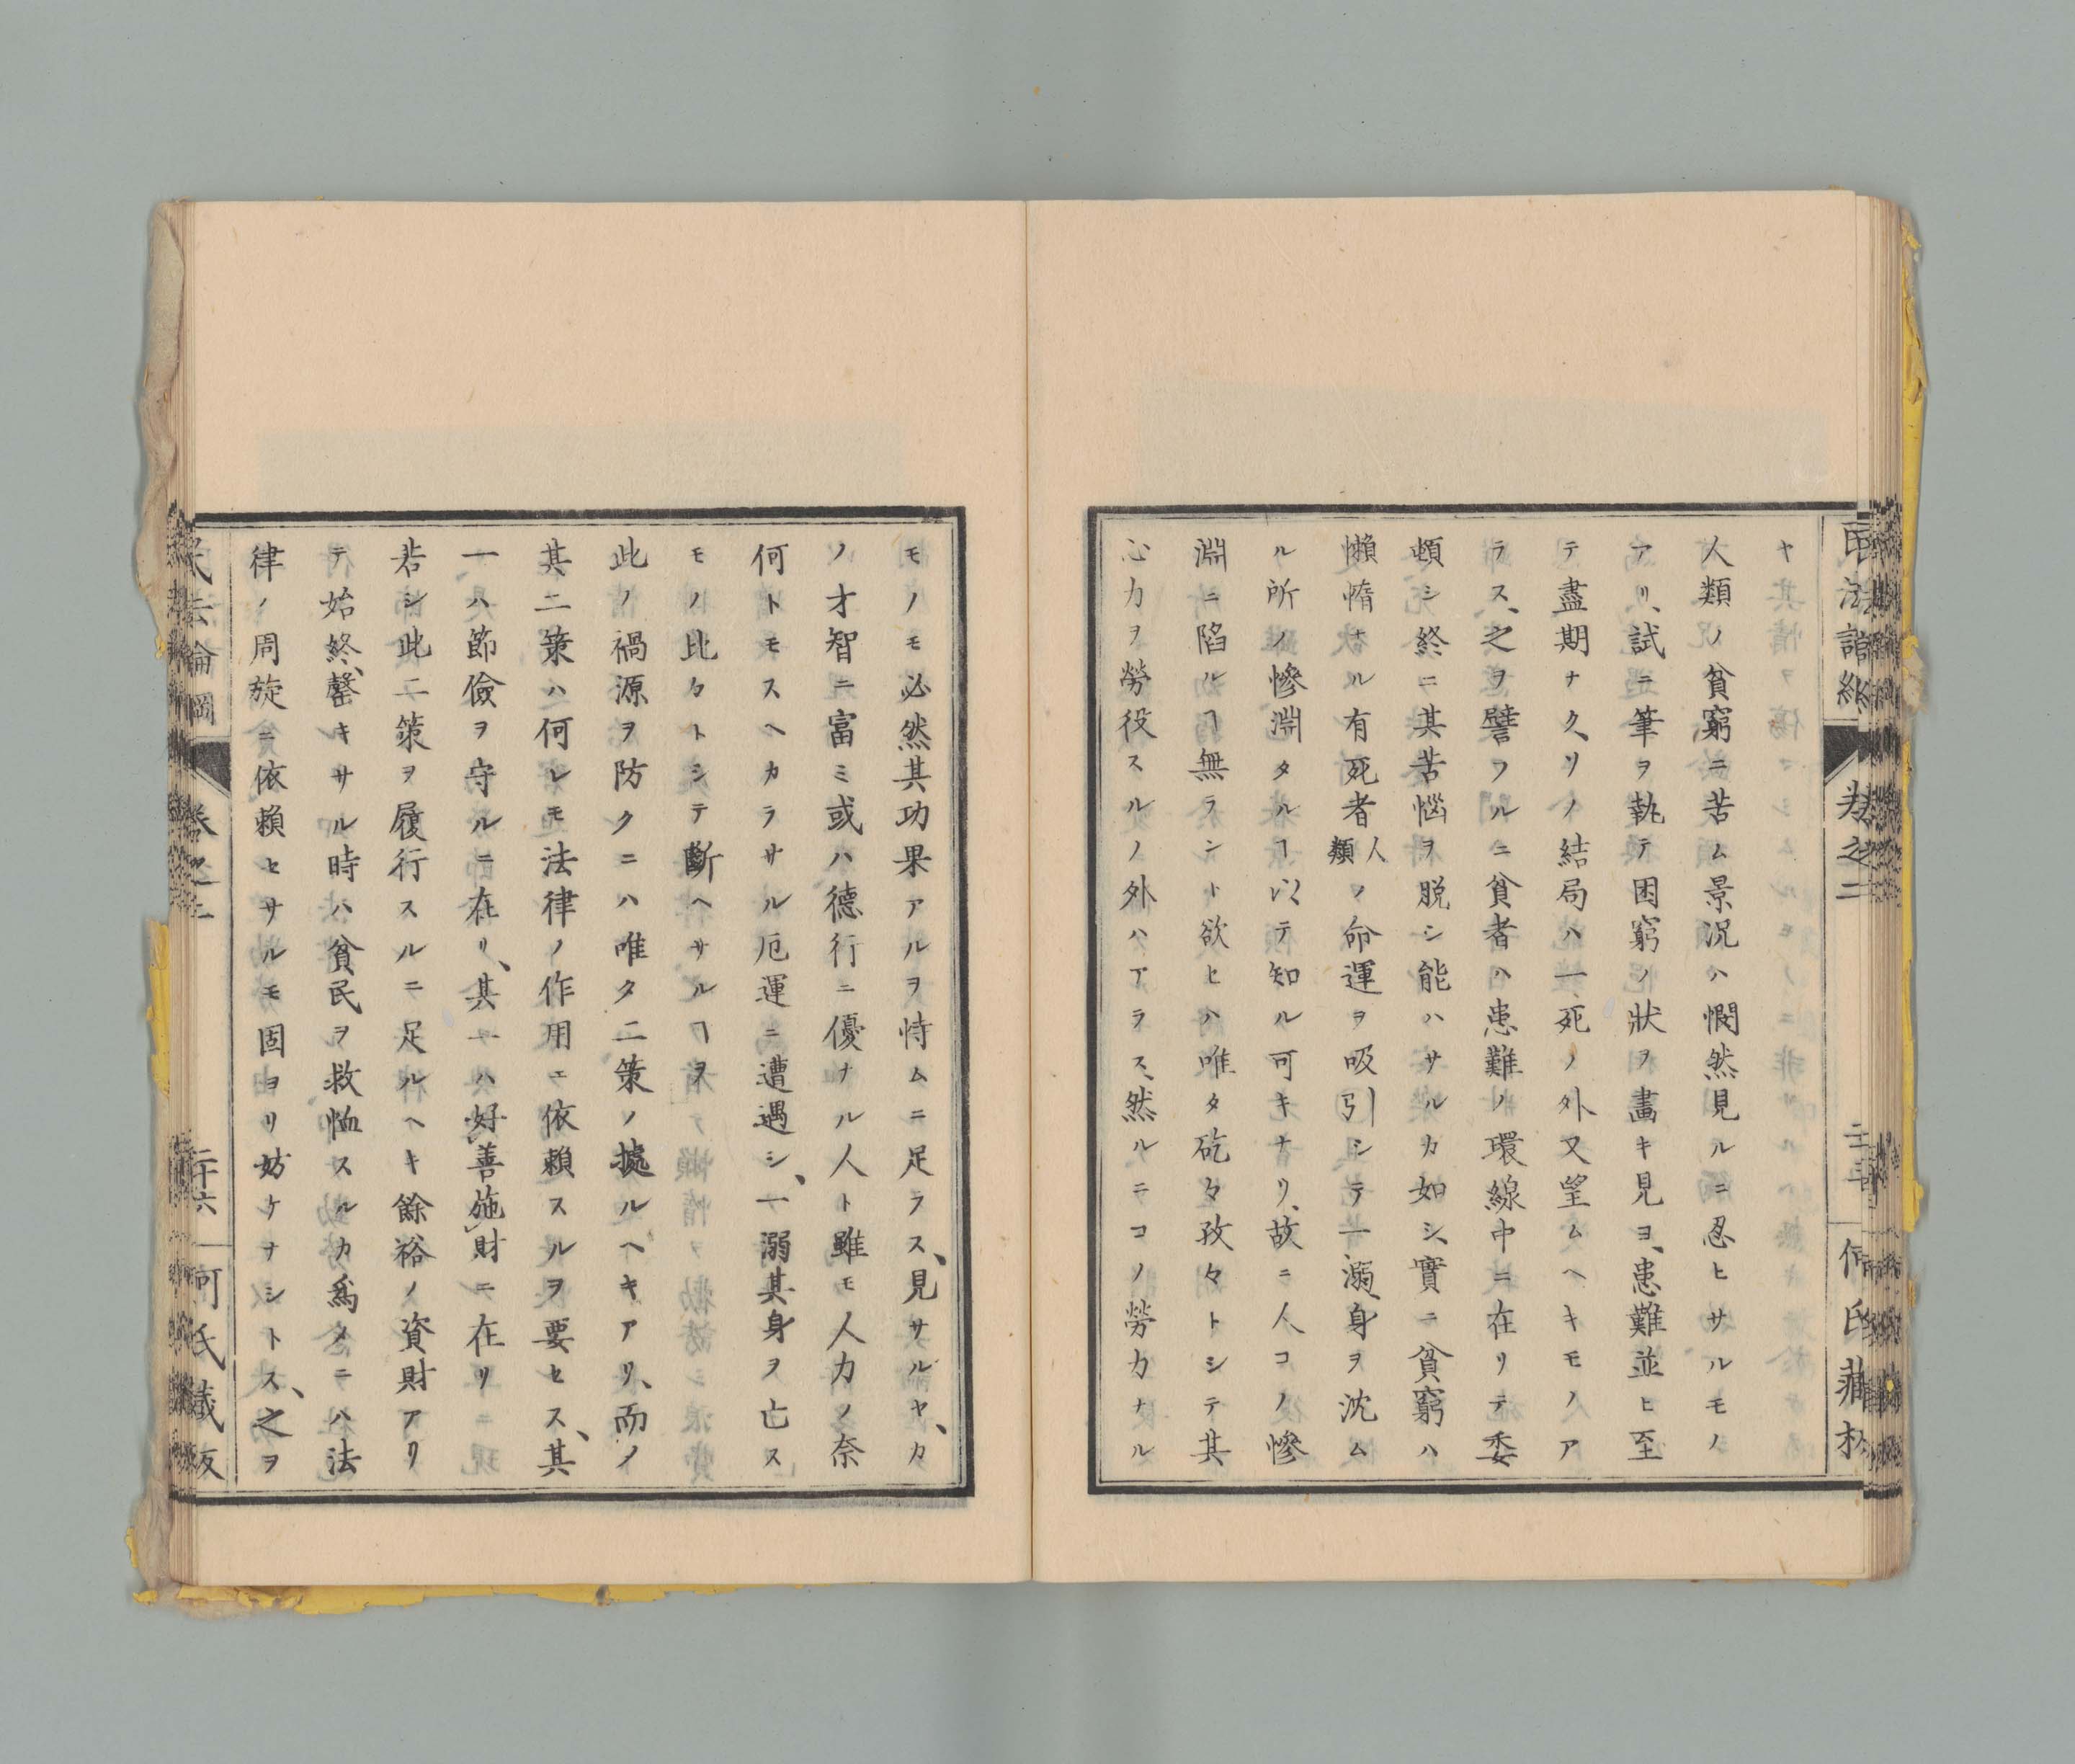 ヤ
人類ノ貧窮ニ苦ム景況ハ憫然見ルニ忍ヒサルモノ
アリ、試ニ筆ヲ執テ困窮ノ狀ヲ畵キ見ヨ、患難並ヒ至
テ盡期ナク、リノ結局ハ一死ノ外又望ムヘキモノア
ラス、之ヲ譬フルニ貧者ハ患難ノ環線中ニ在リテ委
頓シ終ニ其苦惱ヲ脱シ能ハサルカ如シ、實ニ貧窮ハ
懶惰ナル有死者人類ノ命運ヲ吸引シテ一溺身ヲ沈ム
ル所ノ慘淵タルヿ以テ知ル可キナリ、故ニ人コノ慘
淵ニ陷ルヿ無ラント欲セハ唯タ矻々孜々トシテ其
心力ヲ勞役スルノ外ハアラス、然ルニコノ勞力ナル
モノモ必然其功果アルヲ恃ムニ足ラス、見サルヤ、カ
ノ才智ニ富ミ或ハ德行ニ優ナル人ト雖モ人力ノ奈
何トモスヘカラサル厄運ニ遭遇シ、一溺其身ヲ亡ス
モノ比々トシテ斷ヘサルヿヲ
此ノ禍源ヲ防クニハ唯タ二策ノ據ルヘキアリ、而ノ
其二策ハ何レモ法律ノ作用ニ依賴スルヲ要セス、其
一ハ節儉ヲ守ルニ在リ、其一ハ好善施財ニ在リ
若シ此二策ヲ履行スルニ足ルヘキ餘裕ノ資財アリ
テ始終、罄キサル時ハ貧民ヲ救恤スルカ爲メニハ法
律ノ周旋ニ依賴セサルモ固ヨリ妨ケナシトス、之ヲ
民法論綱
卷之二
二十六
何氏藏版